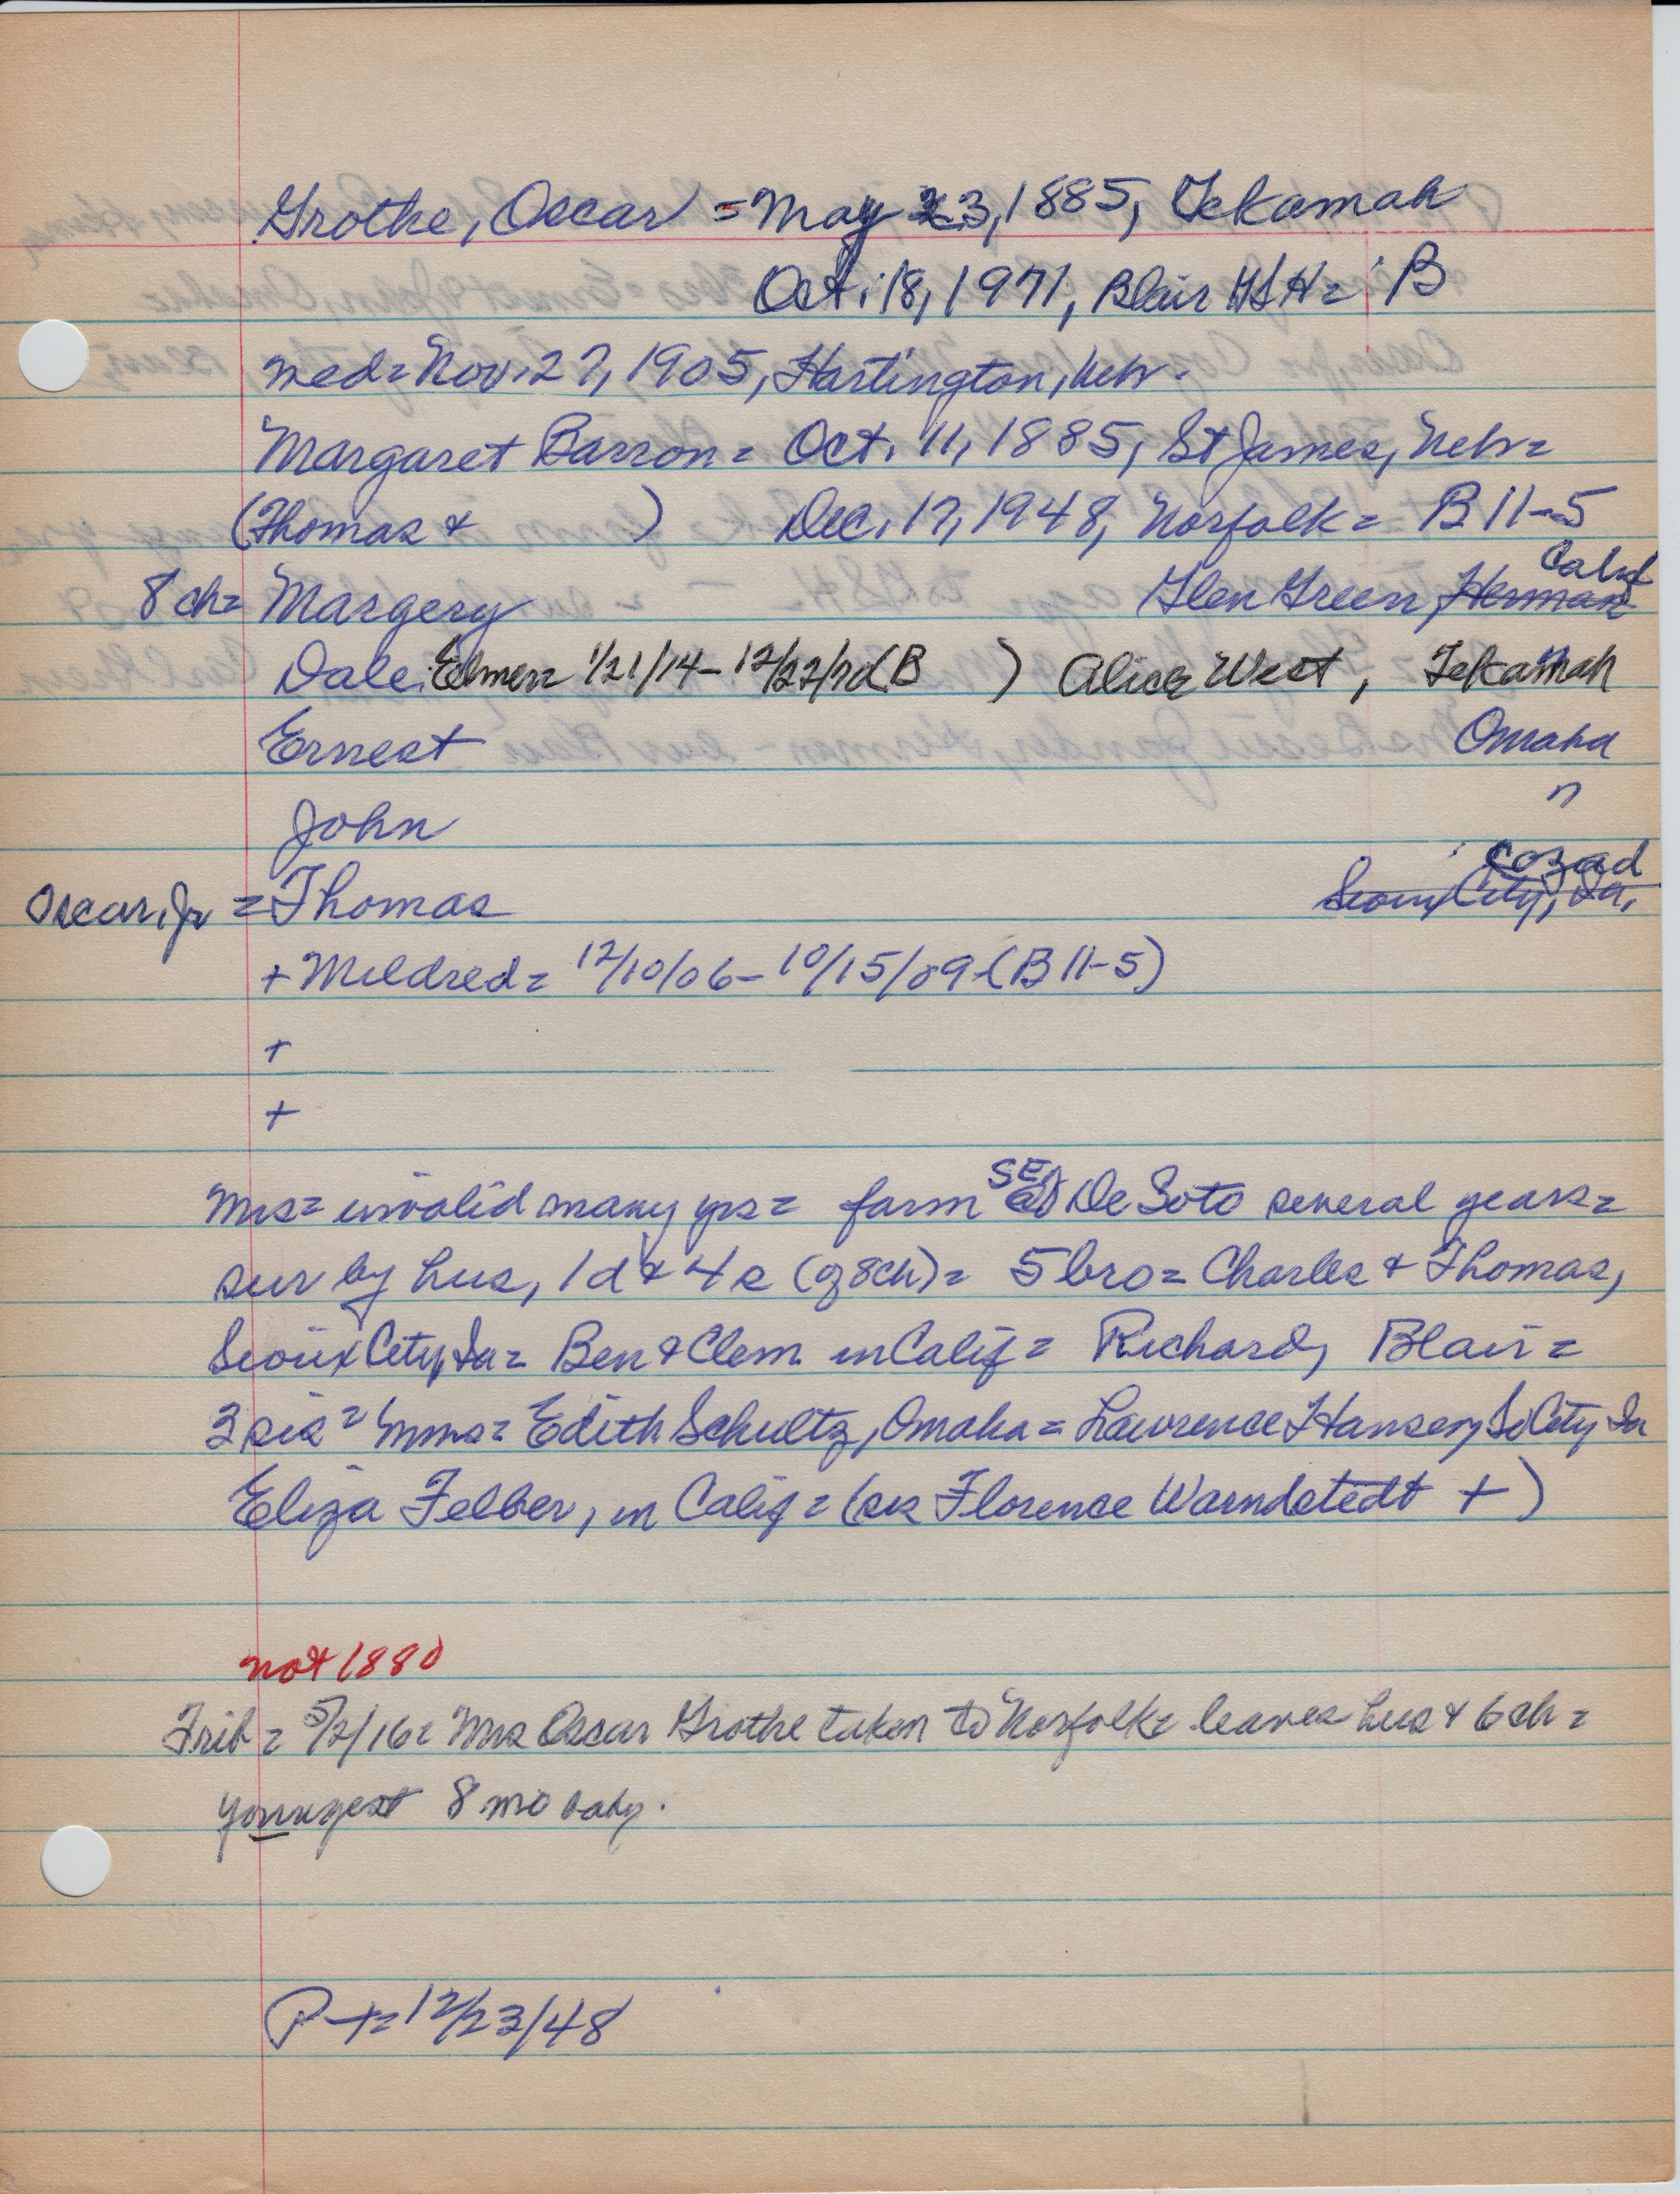 Grothe, Oscar = May 23, 1885, Tekamah
Oct. 18, 1971, Blair GSH = B
wed = Nov. 27, 1905, Hartington, Nebr.
Margaret Barron = Oct. 11, 1885, St James, Nebr =
(Thomas & ) Dec. 17, 1948, Norfolk = B 11-5
Calif
8 ch = Margery Glen Green, Herman
Dale Elmer = 1/21/14 - 12/22/ (B ) Alice West, Tekamah
Ernest Omaha
John "
Cozad
Oscar, Jr = Thomas Sioux City, Ia,
+ Mildred = 12/10/06 - 10/15/09 (B 11-5)
+
+
SE
Mrs = invalid many yrs = farm De Soto several years =
sur by hus, 1 d & 4 s (of 8 ch) = 5 bro = Charles & Thomas,
Sioux City, Ia = Ben & Clem in Calif = Richard, Blair =
3 sis = Mms = Edith Schultz, Omaha = Lawrence Hansen, S City Ia
Eliza Felber, in Calif = (sis Florence Warndstedt +)
not 1880
Trib = 5/2/16 = Mrs Oscar Grothe taken to Norfolk = leaves hus & 6 ch =
youngest 8 mo baby.
P + = 12/23/48